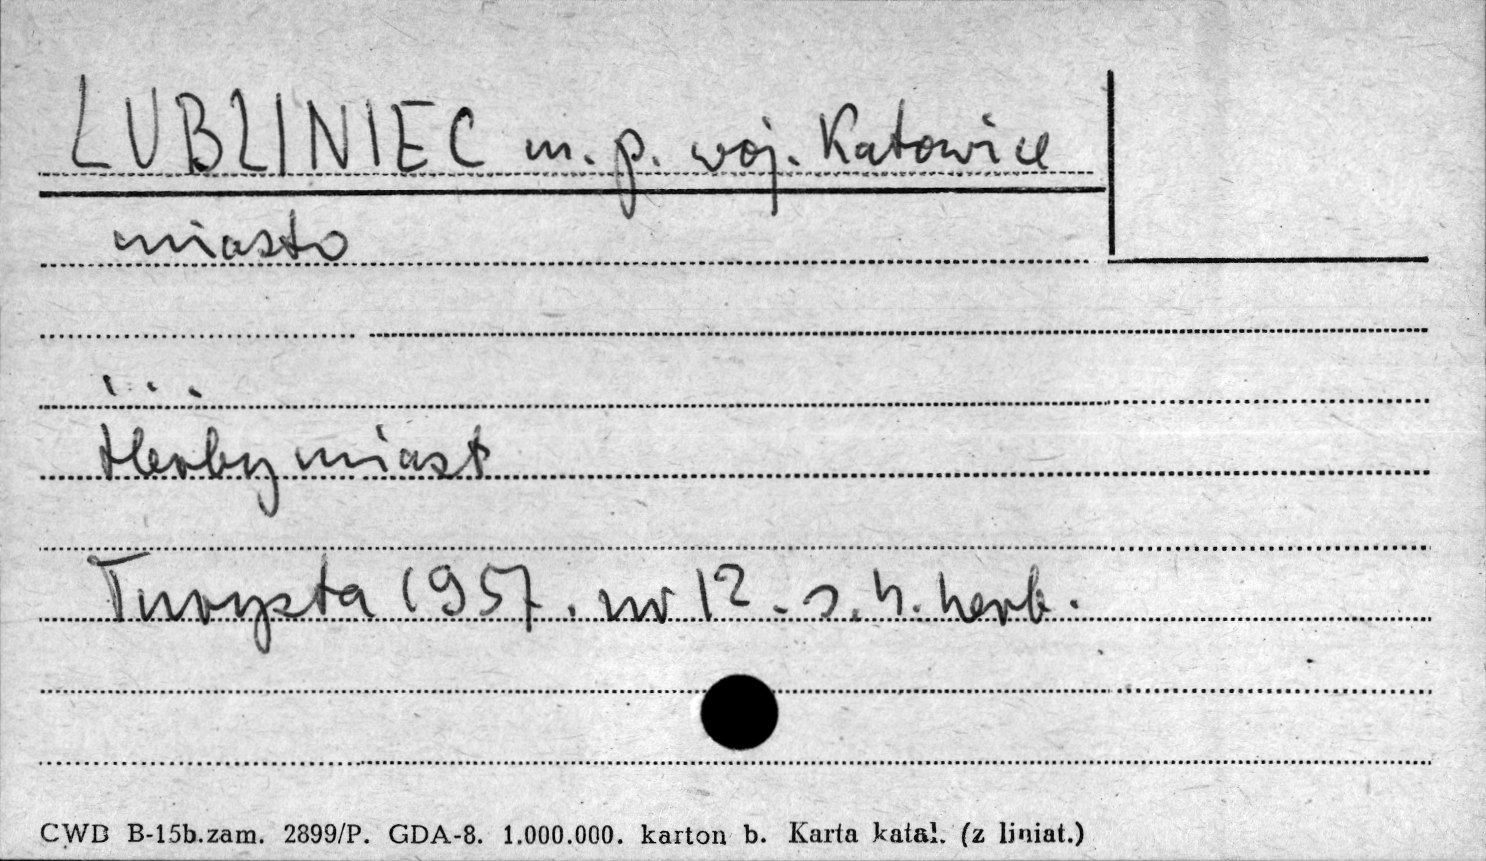 LUBLINIEC m. p. woj. Katowice
miasto
...
Herby miast
Turysta 1957. nr 12. s. 4. herb.
CWD B-15b.zam. 2899/P. GDA-8. 1.000.000. karton b. Karta katal. (z liniat.)